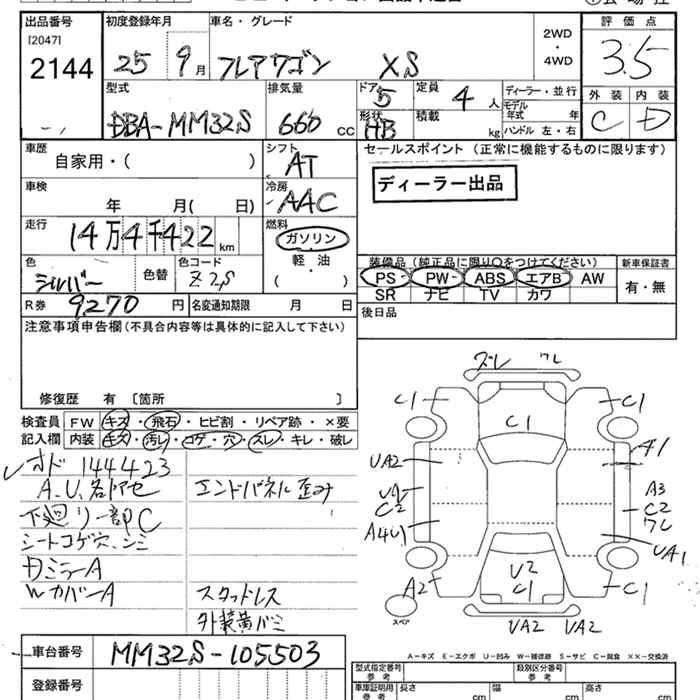 出品番号
[2047]
2144
初度登録年月
25 9月
車名・グレード
フレアワゴン XS
2WD
・
4WD
評価点
3.5
型式
DBA-MM32S
排気量
660 CC
ドア 5
定員 4 人
形状 HB
積載 kg
ディーラー・並行
モデル年式 年
ハンドル 左・右
外装 内装
C D
車歴
自家用・( )
シフト
AT
セールスポイント (正常に機能するものに限ります)
ディーラー出品
車検
年 月( 日)
冷房
AAC
走行
14万4千422km
燃料
ガソリン
軽・油
( )
色
シルバー
色替
色コード
Z2S
装備品(純正品に限り○をつけてください)
新車保証書
PS PW ABS エアB AW
SR ナビ TV カワ
有・無
R券 9270円
名変通知期限 月 日
後日品
注意事項申告欄(不具合内容等は具体的に記入して下さい)
修復歴 有 〔箇所 〕
検査員
記入欄
FW キズ・飛石・ヒビ割・リペア跡・×要
内装 キズ・汚レ・コゲ・穴・スレ・キレ・破レ
オド 144423
A.U.各所アセ
エンドパネル歪み
下廻リ一部C
シートコゲ穴、シミ
ミラーA
WカバーA
スタッドレス
外装黄バミ
ズレ ワレ
C1 C1
C1
UA2
C2
A3
C2
ワレ
UA1
A2
U2
C1
C1
スペア
UA2 UA2
A-キズ E-エクボ U-凹み W-補修跡 S-サビ C-腐食 XX-交換済
車台番号
MM32S-105503
登録番号
型式指定番号
参考
類別区分番号
参考
車庫証明用
参考
長さ cm
幅 cm
高さ cm